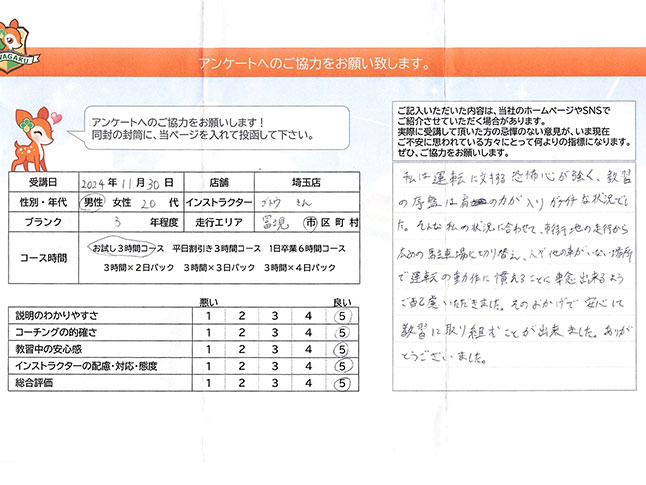 WAGAKU
アンケートへのご協力をお願い致します。
アンケートへのご協力をお願いします！
同封の封筒に、当ページを入れて投函して下さい。
受講日 2024年11月30日 店舗 埼玉店
性別・年代 男性 女性 20 代 インストラクター ゴトウ さん
ブランク 3 年程度 走行エリア 市区町村
コース時間 お試し3時間コース 平日割引き3時間コース 1日卒業6時間コース
3時間×2日パック 3時間×3日パック 3時間×4日パック
悪い 良い
説明のわかりやすさ 1 2 3 4 5
コーチングの的確さ 1 2 3 4 5
教習中の安心感 1 2 3 4 5
インストラクターの配慮・対応・態度 1 2 3 4 5
総合評価 1 2 3 4 5
ご記入いただいた内容は、当社のホームページやSNSで
ご紹介させていただく場合があります。
実際に受講して頂いた方の忌憚のない意見が、いま現在
ご不安に思われている方々にとって何よりの指標になります。
ぜひ、ご協力をお願いします。
私は運転に対する恐怖心が強く、教習
の序盤は肩の力が入りガチガチな状況でし
た。そんな私の状況に合わせて、市街地の走行から
広めの駐車場に切り替え、人や他の車がいない場所
で運転の動作に慣えることに専念出来るよう
ご配慮いただきました。そのおかげで安心して
教習に取り組むことが出来ました。ありが
とうございました。